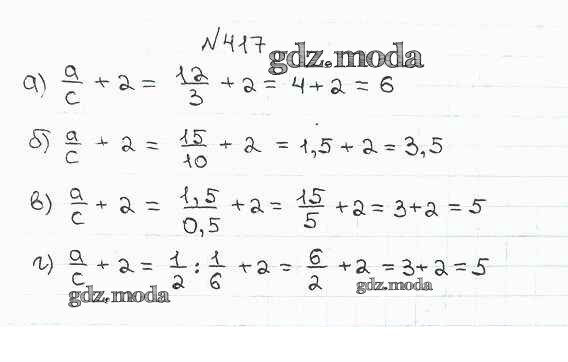 №417
gdz.moda
а) a/c + 2 = 12/3 + 2 = 4 + 2 = 6
б) a/c + 2 = 15/10 + 2 = 1,5 + 2 = 3,5
в) a/c + 2 = 1,5/0,5 + 2 = 15/5 + 2 = 3 + 2 = 5
г) a/c + 2 = 1/2 : 1/6 + 2 = 6/2 + 2 = 3 + 2 = 5
gdz.moda
gdz.moda